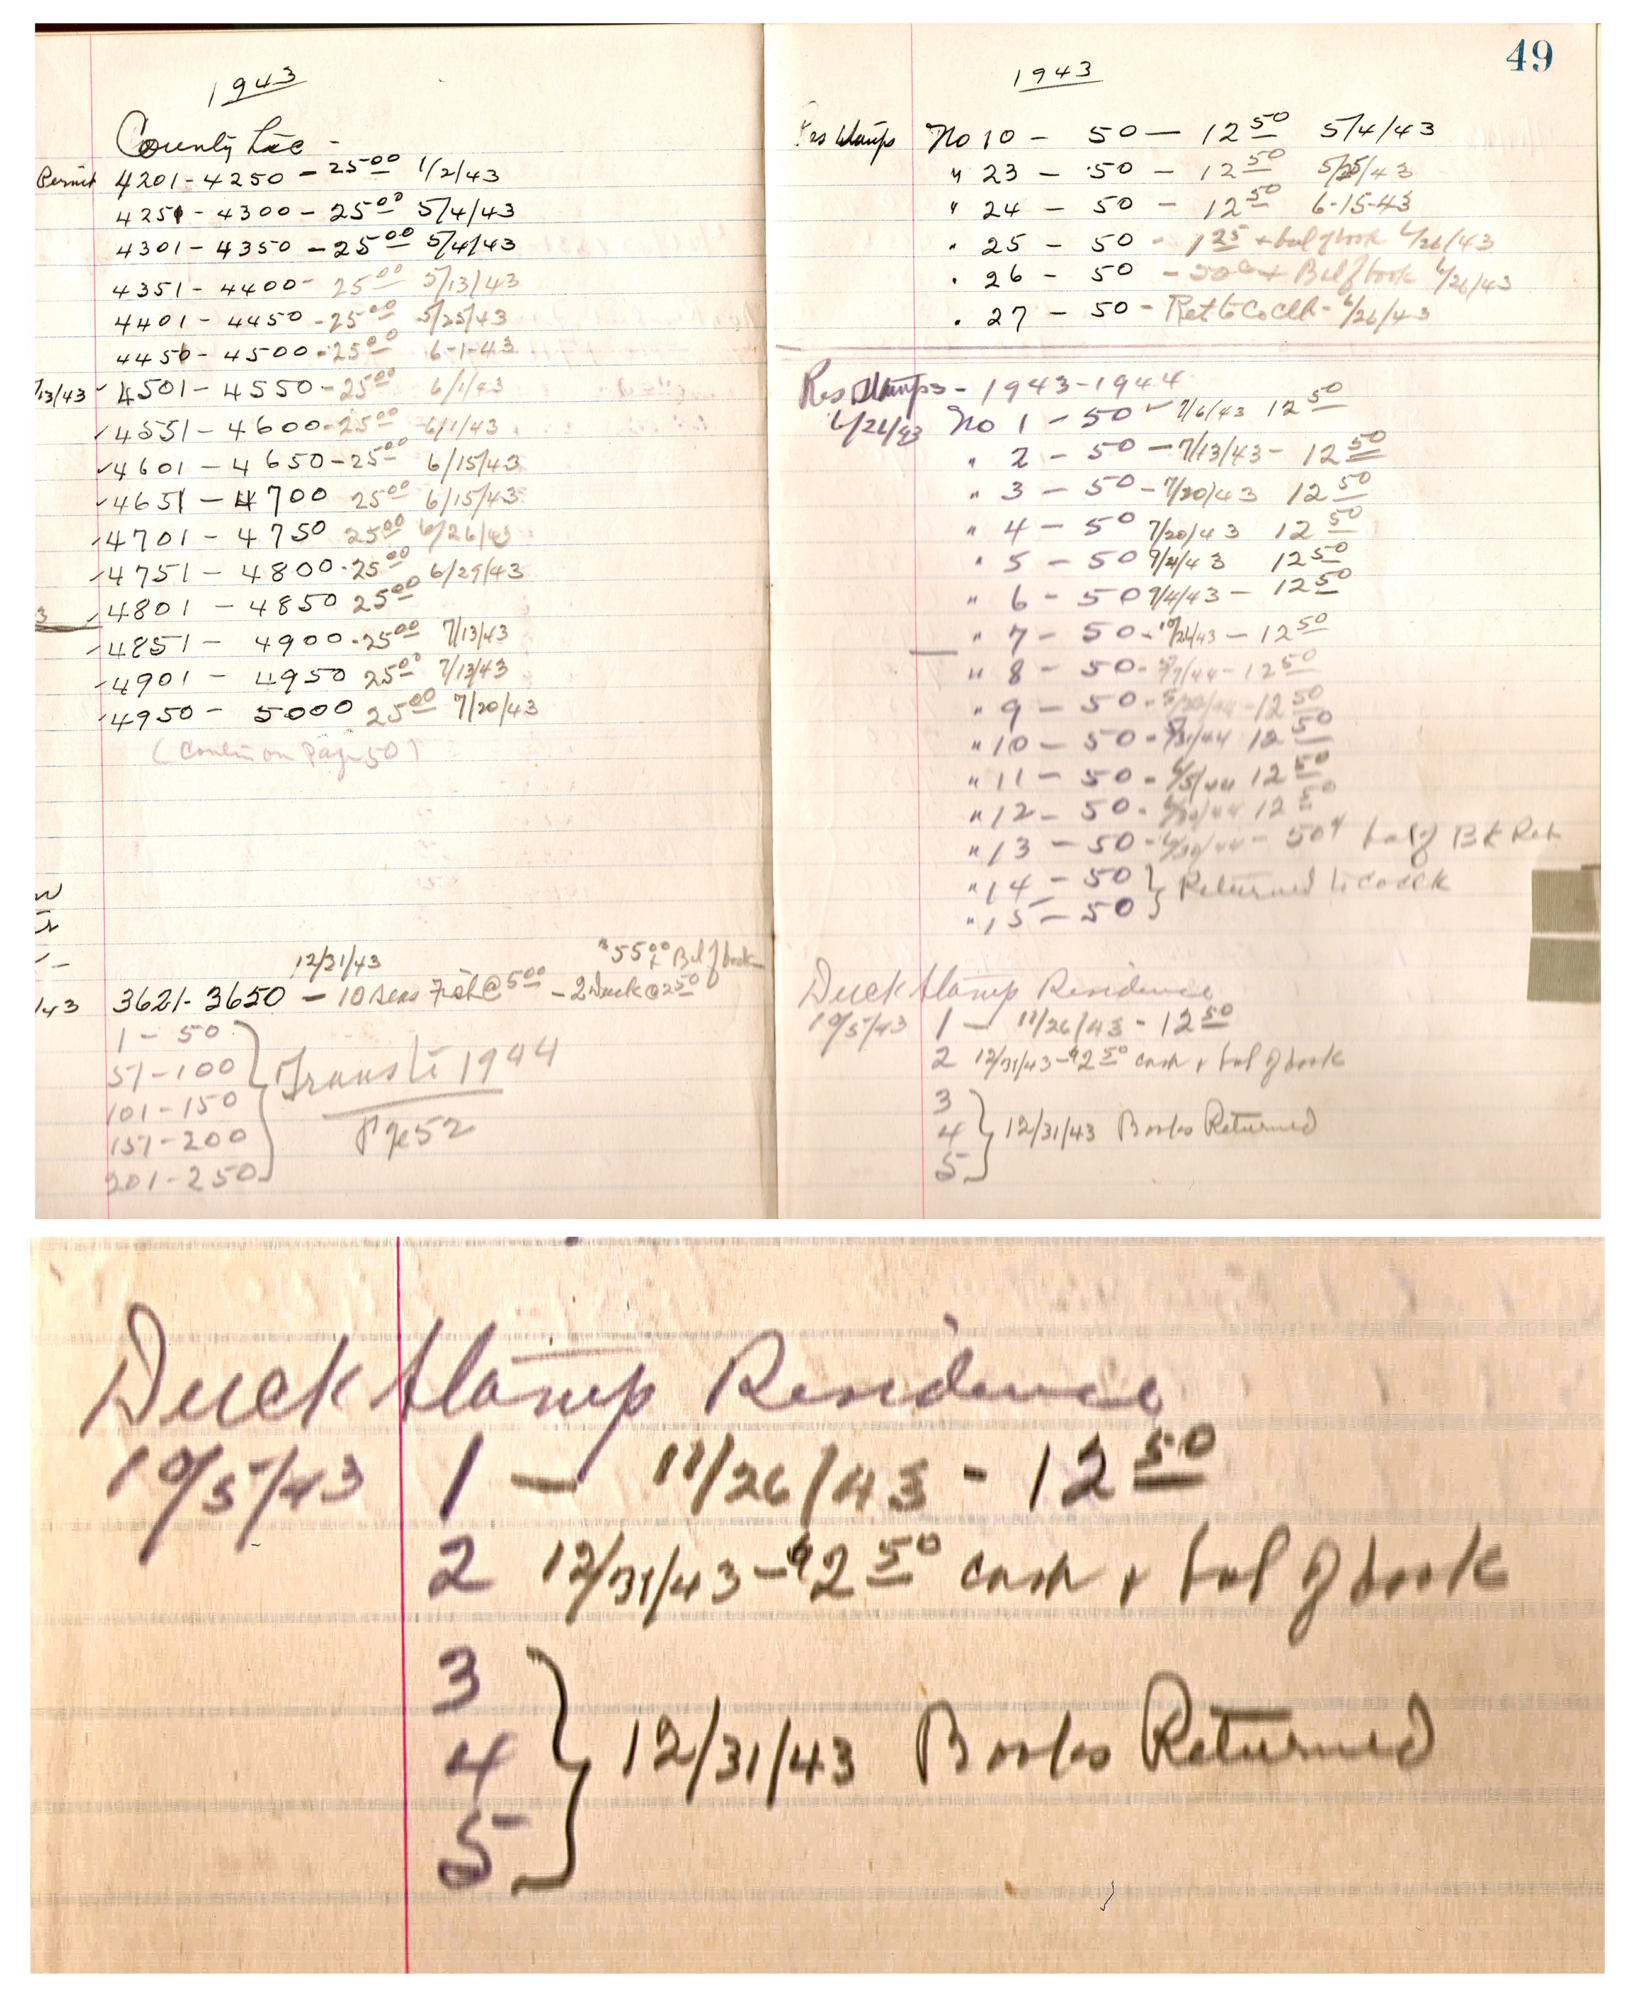 1943
County Lic -
Permit 4201-4250 - 25.00 1/2/43
4251 - 4300 - 25.00 5/4/43
4301 - 4350 - 25.00 5/4/43
4351 - 4400 - 25.00 5/13/43
4401 - 4450 - 25.00 5/25/43
4450 - 4500 - 25.00 6-1-43
/13/43 ✓ 4501 - 4550 - 25.00 6/1/43
✓ 4551 - 4600 - 25.00 6/1/43
✓ 4601 - 4650 - 25.00 6/15/43
✓ 4651 - 4700 25.00 6/15/43
✓ 4701 - 4750 25.00 6/26/43
✓ 4751 - 4800 - 25.00 6/29/43
3 ✓ 4801 - 4850 25.00
✓ 4851 - 4900 - 25.00 7/13/43
✓ 4901 - 4950 25.00 7/13/43
✓ 4950 - 5000 25.00 7/20/43
(Contin on Page 50)
12/31/43 $55.00 + Bal of book
/43 3621-3650 - 10 Seas Fish @ 5.00 - 2 Duck @ 2.50
1 - 50
51 - 100
101 - 150
151 - 200
201 - 250
} Trans to 1944
Pge 52
49
1943
Res Stamps No 10 - 50 - 12.50 5/4/43
" 23 - 50 - 12.50 5/25/43
" 24 - 50 - 12.50 6-15-43
" 25 - 50 - 1.25 + bal of book 6/26/43
" 26 - 50 - 50¢ + Bal of book 6/26/43
" 27 - 50 - Ret to Co Clk - 6/26/43
Res Stamps - 1943-1944
6/26/43 No 1 - 50 ✓ 7/6/43 12.50
" 2 - 50 - 7/13/43 - 12.50
" 3 - 50 - 7/20/43 12.50
" 4 - 50 7/20/43 12.50
" 5 - 50 12.50
" 6 - 50 9/4/43 - 12.50
" 7 - 50 - 10/26/43 - 12.50
" 8 - 50 - 5/9/44 - 12.50
" 9 - 50 - 5/20/44 - 12.50
" 10 - 50 - 5/31/44 12.50
" 11 - 50 - 6/5/44 12.50
" 12 - 50 - 6/30/44 12.50
" 13 - 50 - 6/30/44 - 50¢ bal of Bk Ret
" 14 - 50
" 15 - 50
} Returned to Co Clk
Duck Stamp Residence
10/5/43 1 - 11/26/43 - 12.50
2 12/31/43 - $2.50 cash + bal of book
3
4
5
} 12/31/43 Books Returned
Duck Stamp Residence
10/5/43 1 - 11/26/43 - 12.50
2 12/31/43 - $2.50 cash + bal of book
3
4
5
} 12/31/43 Books Returned